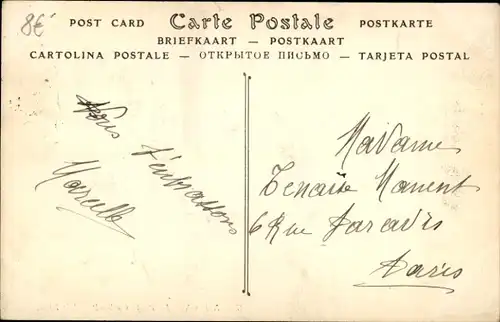 8€
POST CARD Carte Postale POSTKARTE
BRIEFKAART — POSTKAART
CARTOLINA POSTALE — ОТКРЫТОЕ ПИСЬМО — TARJETA POSTAL
Nous
t'embrassons
Marcelle
Madame
6 Rue Paradis
Paris